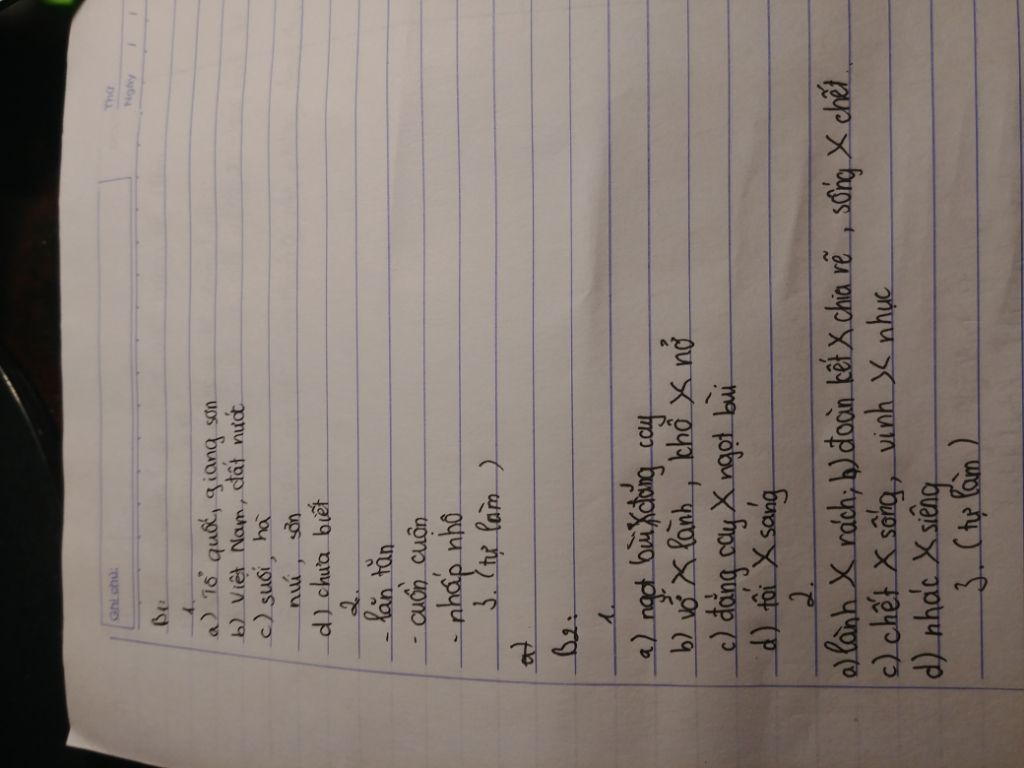 Thứ
Ngày / /
Ghi chú:
B1:
1.
a) Tổ quốc, giang sơn
b) Việt Nam, đất nước
c) suối, hà
núi, sơn
d) chưa biết
2.
- lăn tăn
- cuồn cuộn
- nhấp nhô
3. (tự làm)
a)
B2:
1.
a) ngọt bùi X đắng cay
b) vỡ X lành, khô X nở
c) đắng cay X ngọt bùi
d) tối X sáng
2.
a) lành X rách; b) đoàn kết X chia rẽ, sống X chết
c) chết X sống, vinh X nhục
d) nhác X siêng
3. (tự làm)